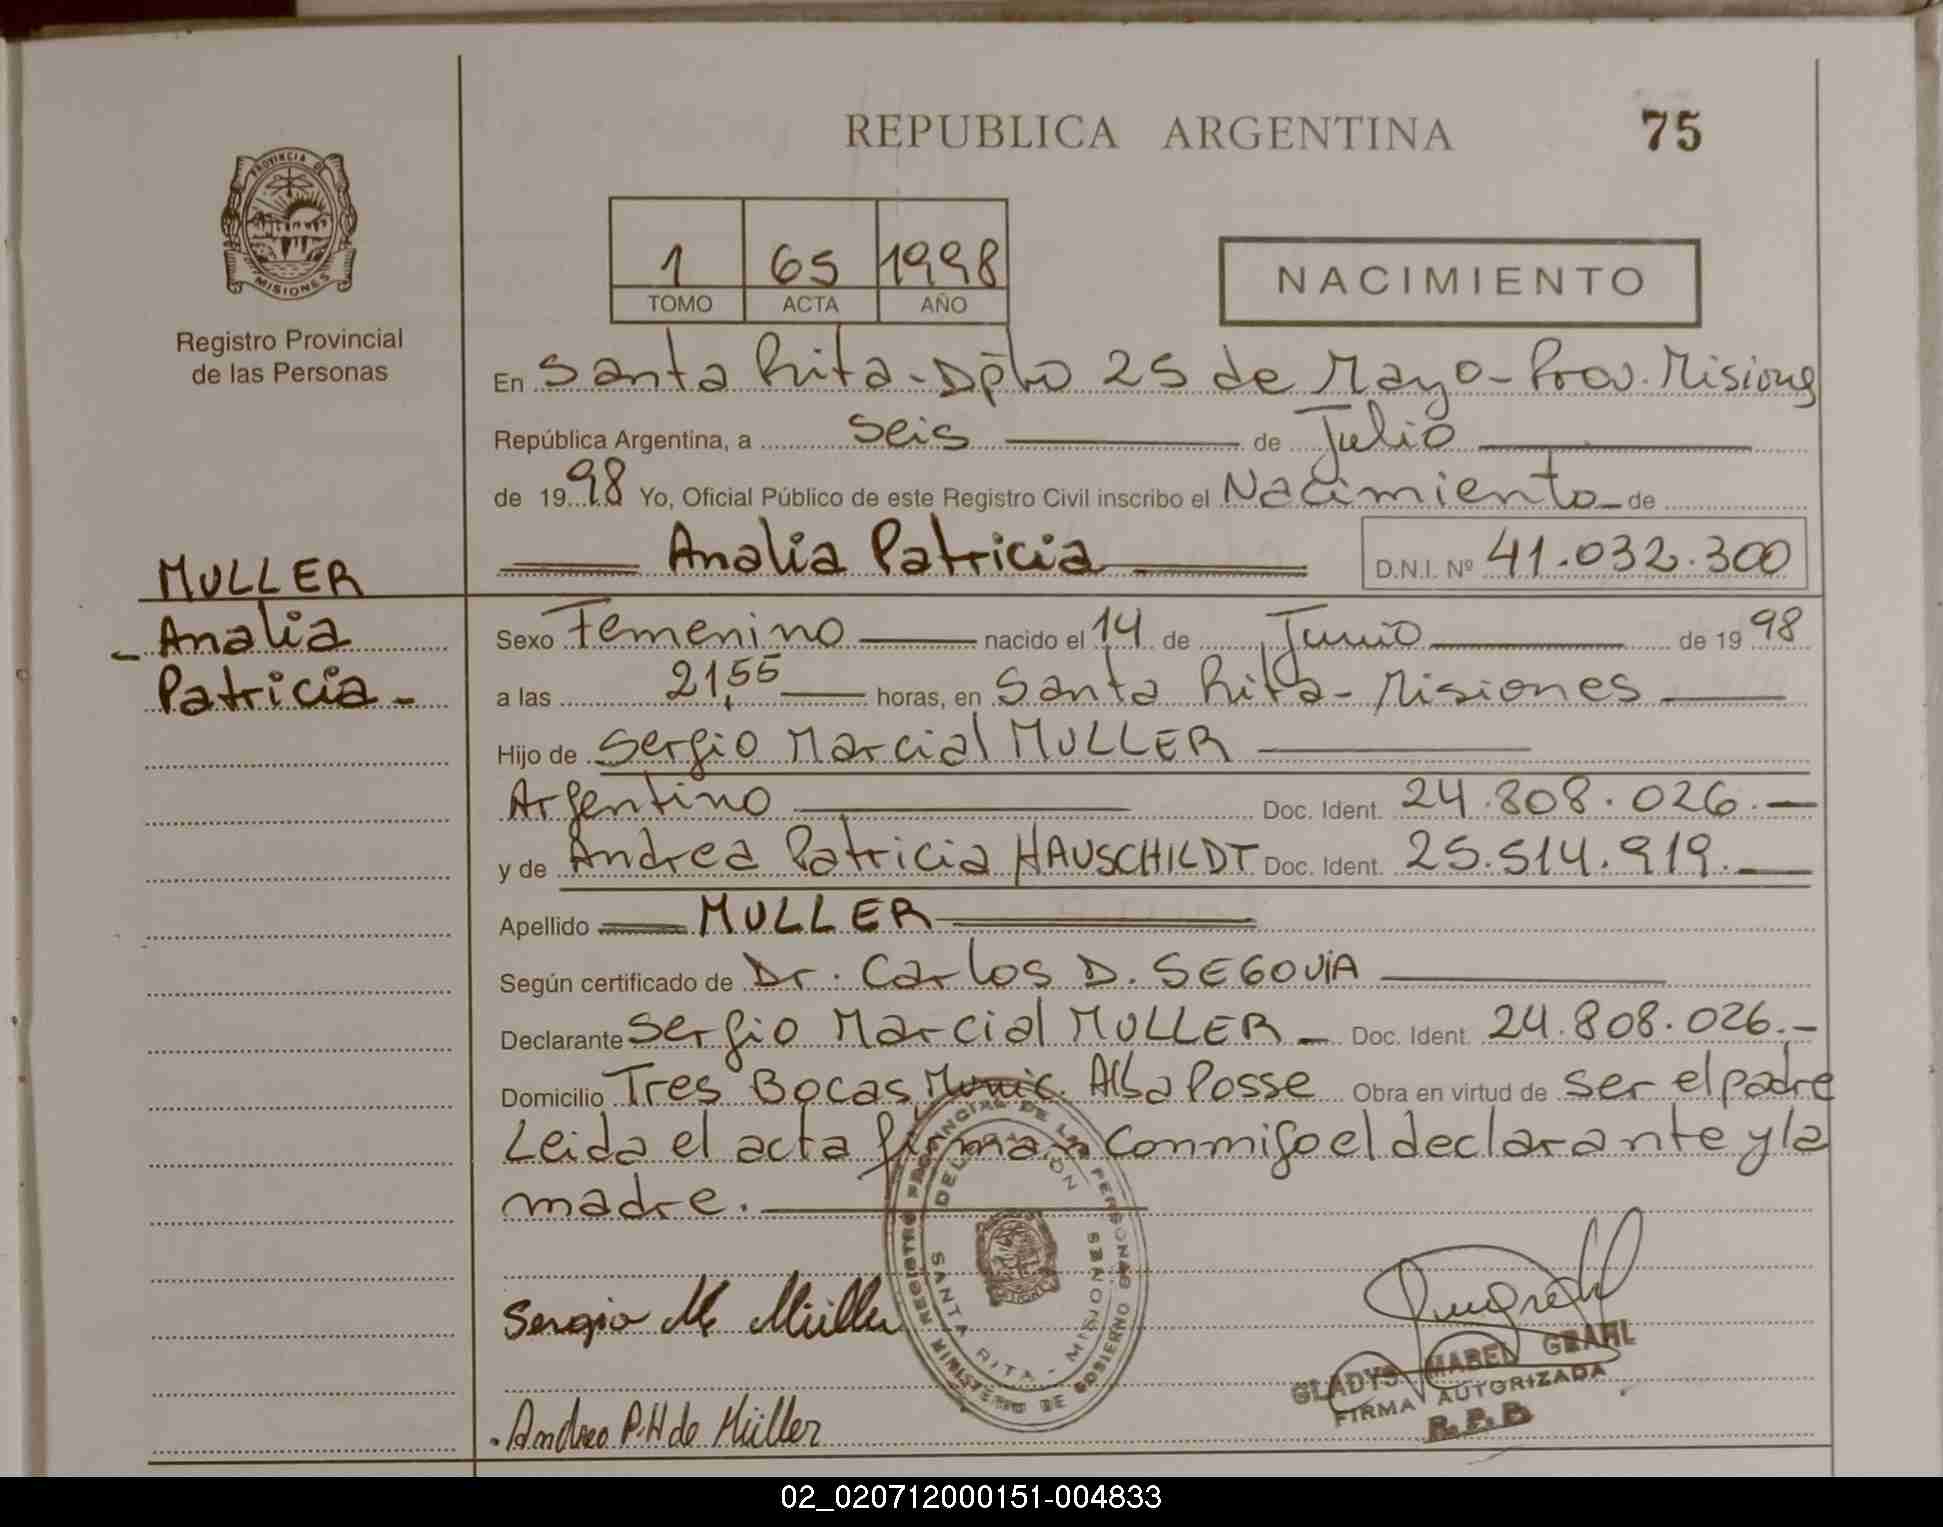 REPUBLICA ARGENTINA
75
PROVINCIA DE
MISIONES
Registro Provincial
de las Personas
1 65 1998
TOMO ACTA AÑO
NACIMIENTO
En Santa Rita - Dpto 25 de Mayo - Prov. Misiones
República Argentina, a seis de Julio
de 1998 Yo, Oficial Público de este Registro Civil inscribo el Nacimiento de
Analia Patricia D.N.I. Nº 41.032.300
MULLER
- Analia
Patricia -
Sexo Femenino nacido el 14 de Junio de 1998
a las 21,55 horas, en Santa Rita - Misiones
Hijo de Sergio Marcial MULLER
Argentino Doc. Ident. 24.808.026.-
y de Andrea Patricia HAUSCHILDT Doc. Ident. 25.514.919.
Apellido MULLER
Según certificado de Dr. Carlos D. SEGOVIA
Declarante Sergio Marcial MULLER - Doc. Ident. 24.808.026.-
Domicilio Tres Bocas, Munic. Alba Posse Obra en virtud de ser el padre
Leida el acta firman conmigo el declarante y la
madre.
REGISTRO PROVINCIAL DE LAS PERSONAS
DELEGACIÓN
SANTA RITA - MISIONES
MINISTERIO DE GOBIERNO
Sergio M. Müller
Andrea P. H de Müller
GLADYS MABEL GRAHL
FIRMA AUTORIZADA
R.P.P.
02_020712000151-004833